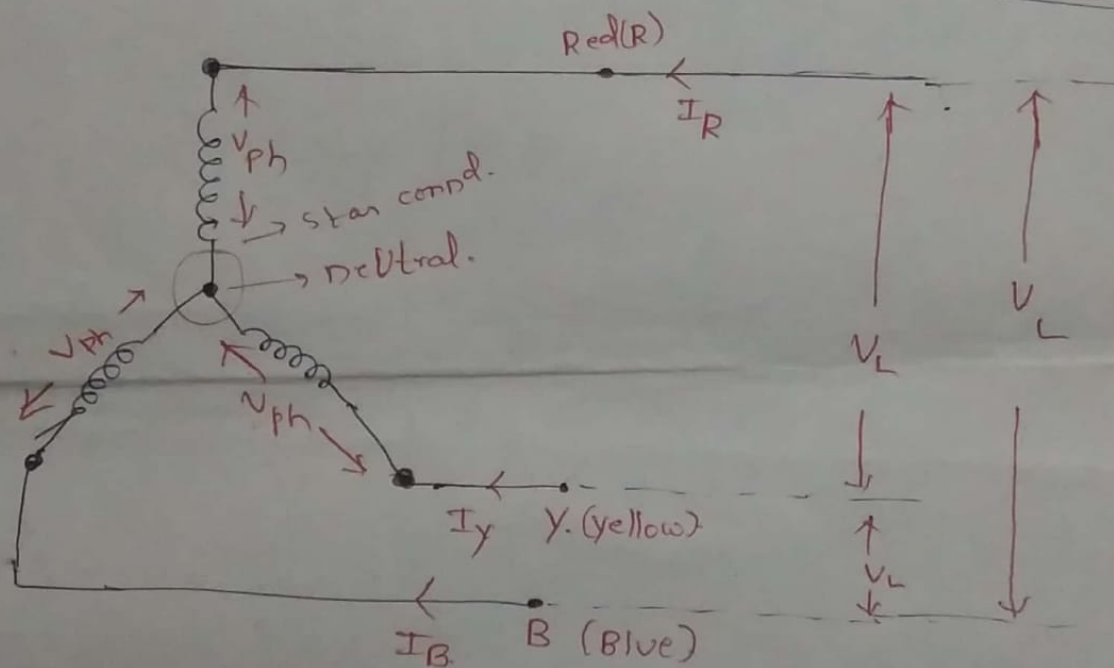 Red(R)
I R
Vph
star connd.
neutral.
Vph
Vph
VL
VL
Iy Y. (yellow)
VL
IB B (Blue)